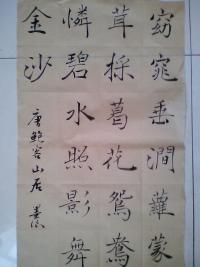 窈窕垂澗蘿蒙
茸採葛花鴛鴦
憐碧水照影舞
金沙
唐鮑溶山居